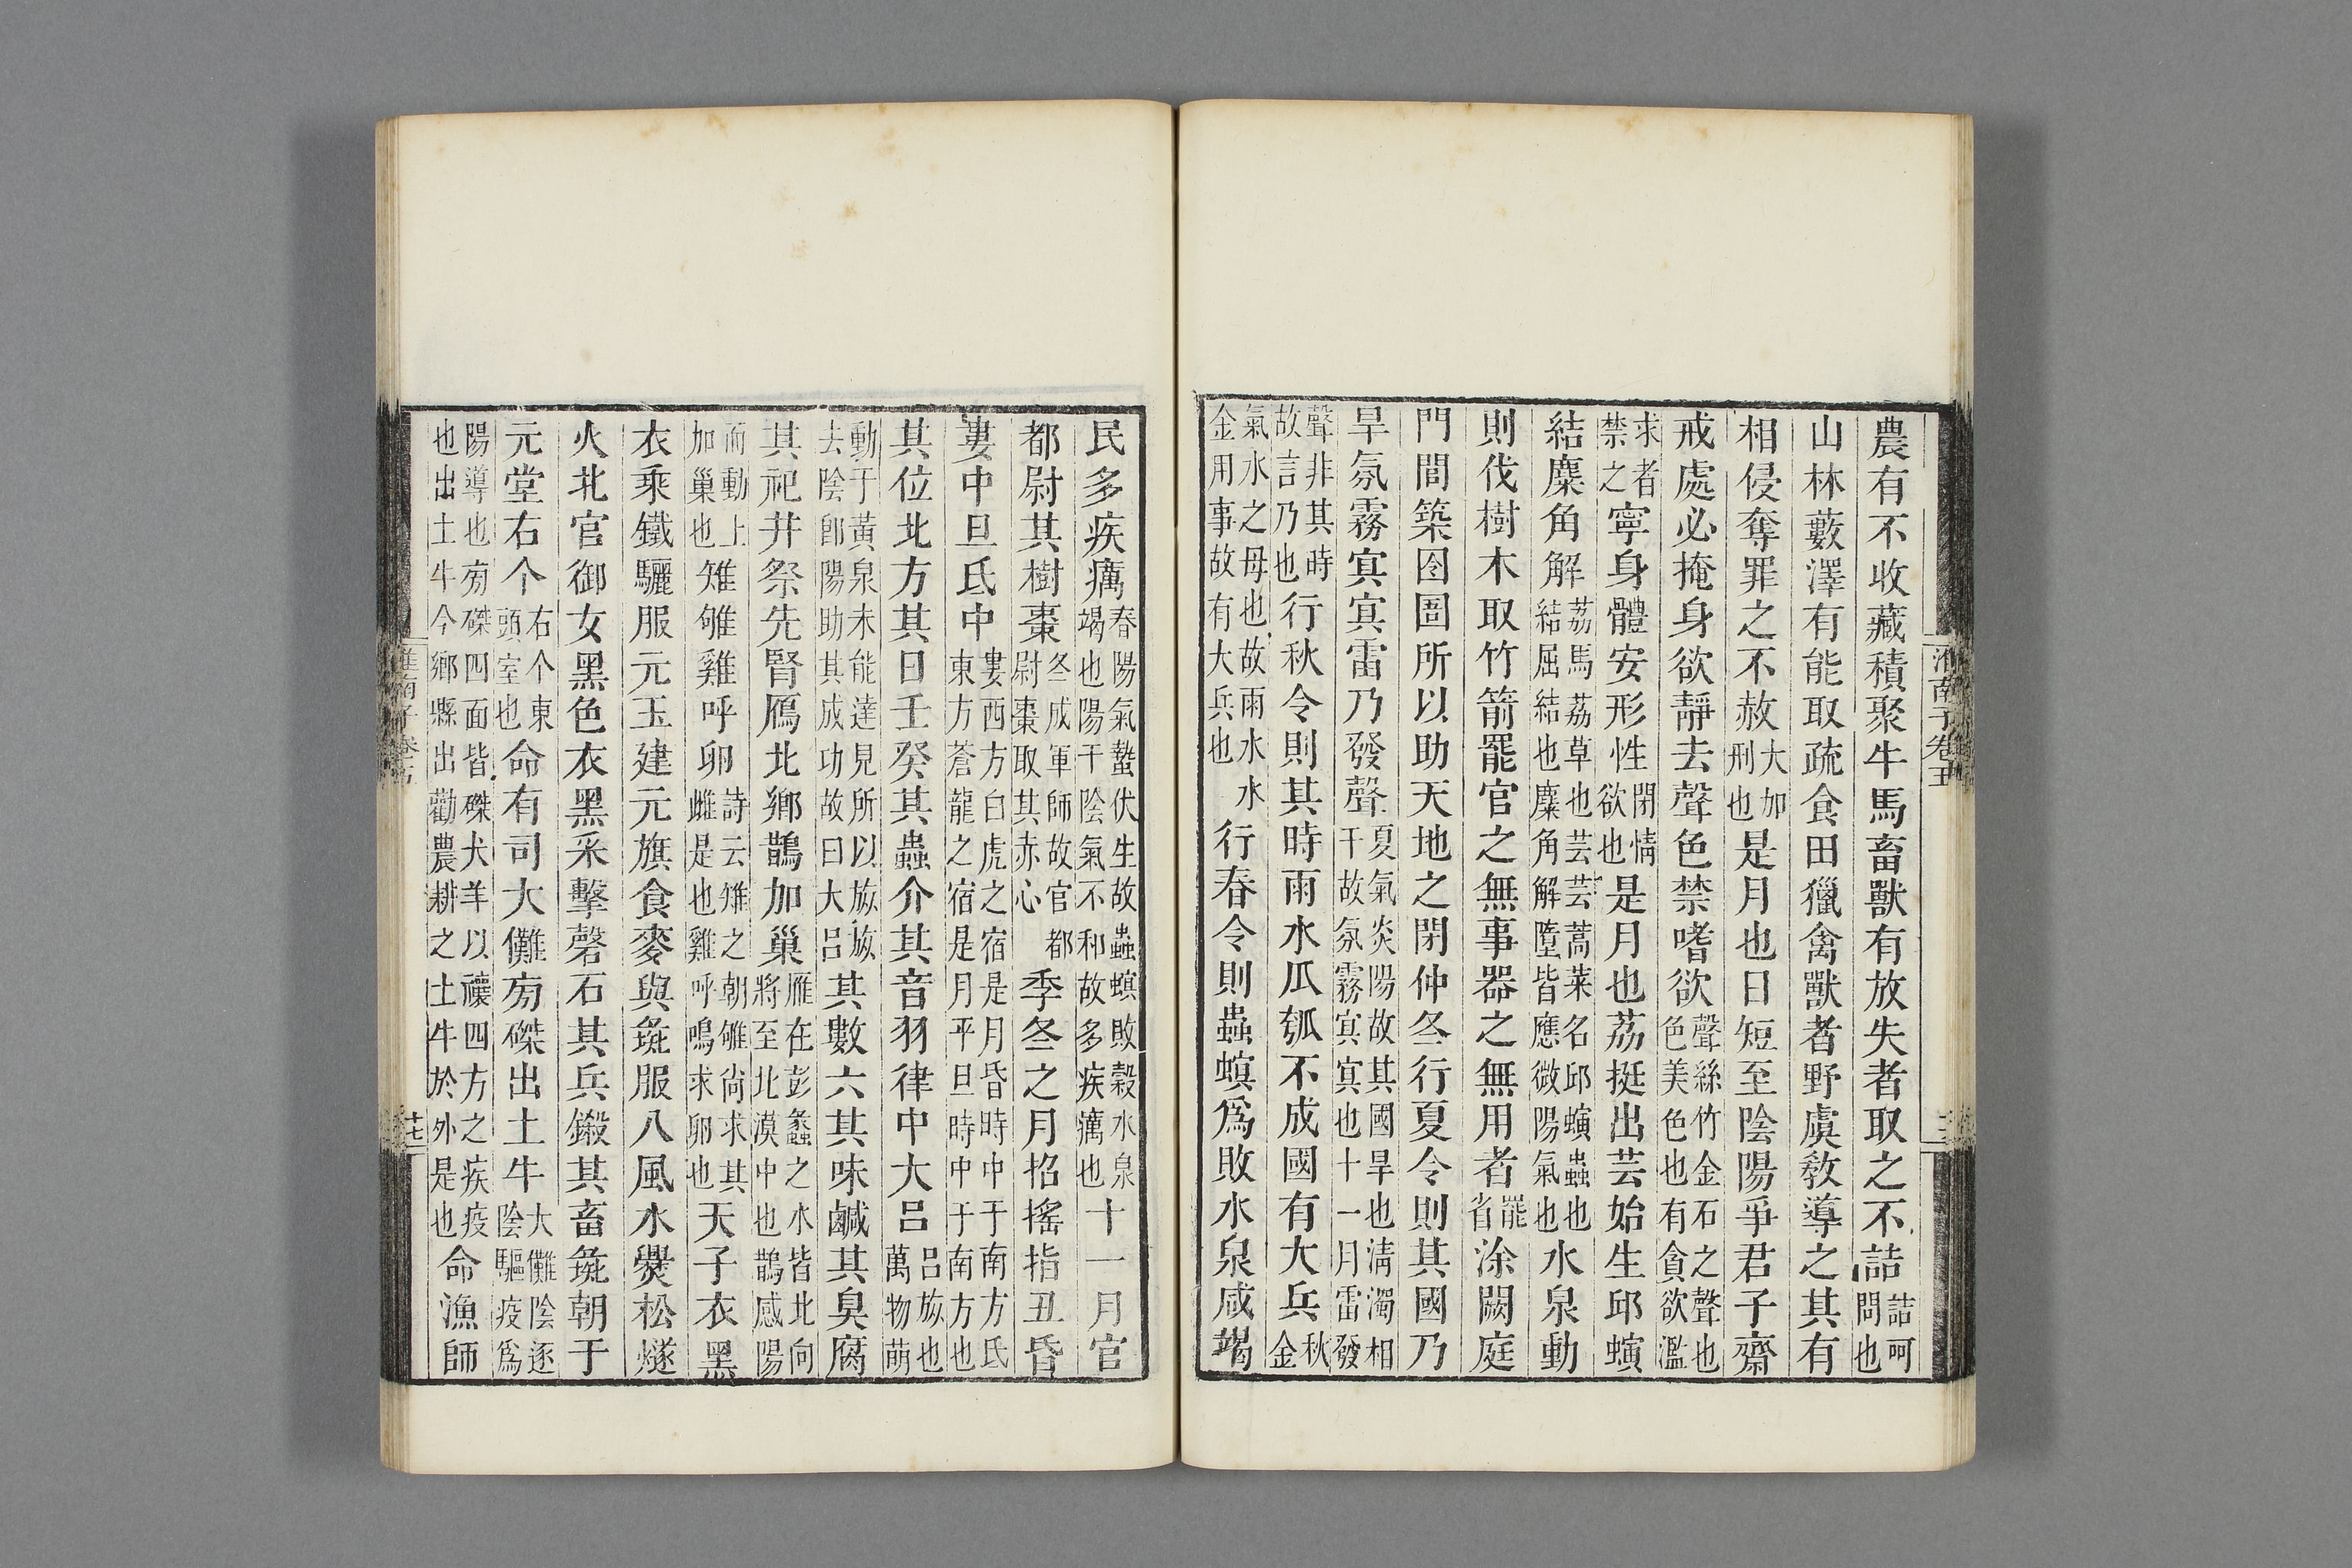 農有不收藏積聚牛馬畜獸有放失者取之不詰詰呵問也
山林藪澤有能取疏食田獵禽獸者野虞教導之其有
相侵奪罪之不赦大加刑也是月也日短至陰陽爭君子齋
戒處必掩身欲靜去聲色禁嗜欲聲絲竹金石之聲也色美色也有貪欲濫
求者禁之寧身體安形性閉情欲也是月也荔挺出芸始生邱螾
結麋角解荔馬荔草也芸芸蒿菜名邱螾蟲也結屈結也麋角解墮皆應微陽氣也水泉動
則伐樹木取竹箭罷官之無事器之無用者罷省涂闕庭
門閭築囹圄所以助天地之閉仲冬行夏令則其國乃
旱氛霧冥冥雷乃發聲夏氣炎陽故其國旱也淸濁相干故氛霧冥冥也十一月雷發
聲非其時故言乃也行秋令則其時雨水瓜瓠不成國有大兵秋金
氣水之母也故雨水金用事故有大兵也水行春令則蟲螟爲敗水泉咸竭
淮南子卷五
民多疾癘春陽氣蟄伏生故蟲螟敗穀水泉竭也陽干陰氣不和故多疾癘也十一月官
都尉其樹棗冬成軍師故官都尉棗取其赤心季冬之月招搖指丑昏
婁中旦氐中婁西方白虎之宿是月昏時中于南方氐東方蒼龍之宿是月平旦時中于南方也
其位北方其日壬癸其蟲介其音羽律中大呂呂旅也萬物萌
動于黃泉未能達見所以旅旅去陰卽陽助其成功故曰大呂其數六其味鹹其臭腐
其祀井祭先腎鴈北鄉鵲加巢雁在彭蠡之水皆北向將至北漠中也鵲感陽
而動上加巢也雉雊雞呼卵詩云雉之朝雊尙求其雌是也雞呼鳴求卵也天子衣黑
衣乘鐵驪服元玉建元旗食麥與彘服八風水爨松燧
火北宮御女黑色衣黑采擊磬石其兵鎩其畜彘朝于
元堂右个右个東頭室也命有司大儺旁磔出土牛大儺陰逐陰驅疫爲
陽導也旁磔四面皆磔犬羊以禳四方之疾疫也出土牛今鄉縣出勸農耕之土牛於外是也命漁師
淮南子卷五